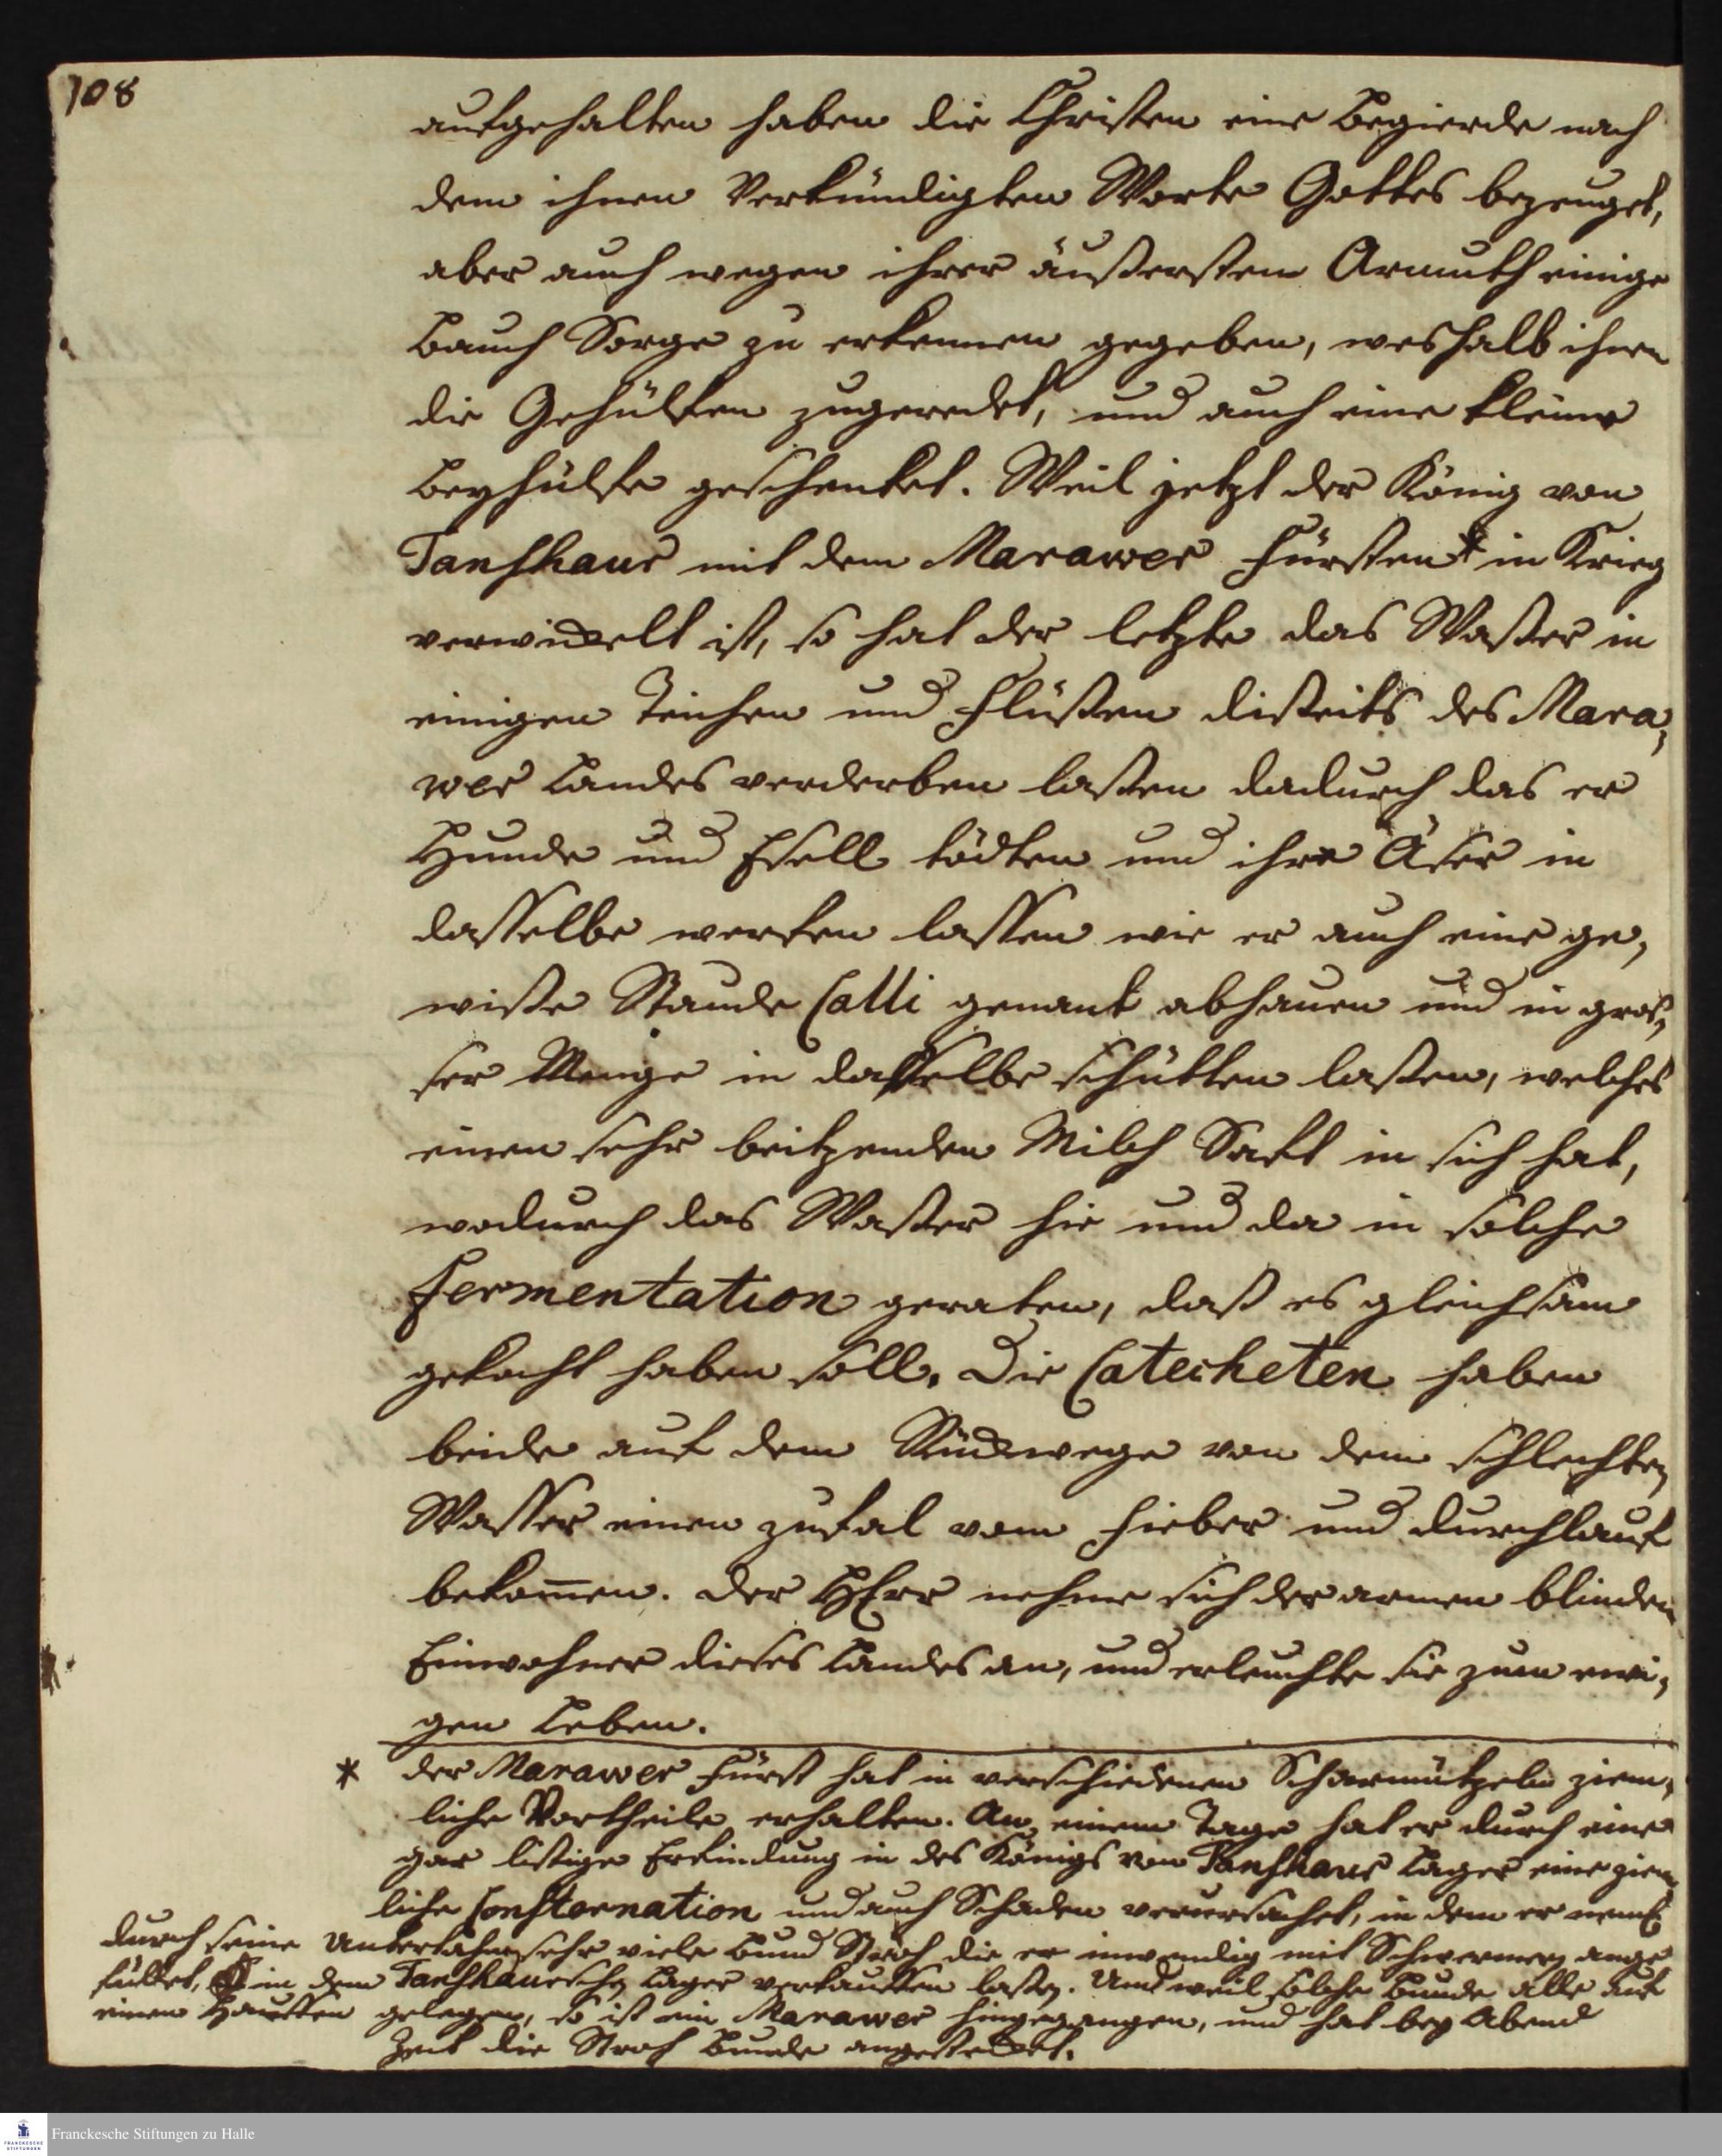 108
aufgehalten haben die Christen eine Begierde nach
dem ihnen Verkündigten Worte Gottes bezeuget,
aber auch wegen ihrer äußersten Armuth einige
Bauch Sorge zu erkennen gegeben, weshalb ihnen
die Gehülfen zugeredet, und auch eine kleine
Beyhülfe geschenket. Weil jetzt der König von
Tanshaur mit dem Marawer Fürsten* in Krieg
verwickelt ist, so hat der letzte das Waßer in
einigen Teichen und Flüßen dißeits des Mara,
wer Landes verderben laßen dadurch das er
Hunde und Esell tödten und ihre Äser in
dasselbe werfen lassen wie er auch eine ge,
wiße Staude Calli genant abhauen und in gros,
ser Menge in dasselbe schütten laßen, welches
einen sehr beitzenden Milch Saft in sich hat,
wodurch das Waßer hie und da in solche
Fermentation geraten, daß es gleichsam
gekocht haben soll. Die Catecheten haben
beide auf dem Rückwege von dem schlechten
Wasser einen zufal vom Fieber und durchlauf
bekom̅en. Der HErr nehme sich der armen blinden
Einwohner dieses Landes an, und erleuchte sie zum ewi,
gen Leben.
* der Marawer Fürst hat in verschiedenen Scharmützeln ziem,
liche Vortheile erhalten. An einem Tage hat er durch eine
gar listige Erfindung in des Königs von Tanshaur Lager eine ziem,
liche Consternation und auch Schaden verursachet, in dem er neml
durch seine Unterthanen sehr viele Bund Stroh die er inwendig mit Schwermern ange
füllet, in dem Tanshaurschen Lager verkauffen laßen. Und weil solche Bunde alle auf
einen Hauffen gelegen, so ist ein Marawer hingegangen, und hat bey Abend
Zeit die Stroh Bunde angestecket.
Franckesche Stiftungen zu Halle
FRANCKESCHE
STIFTUNGEN